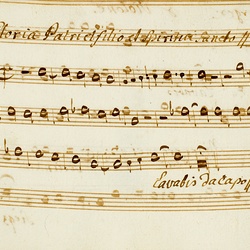 loria Patri et filio et Spiritui sancto
Lavabis da capo